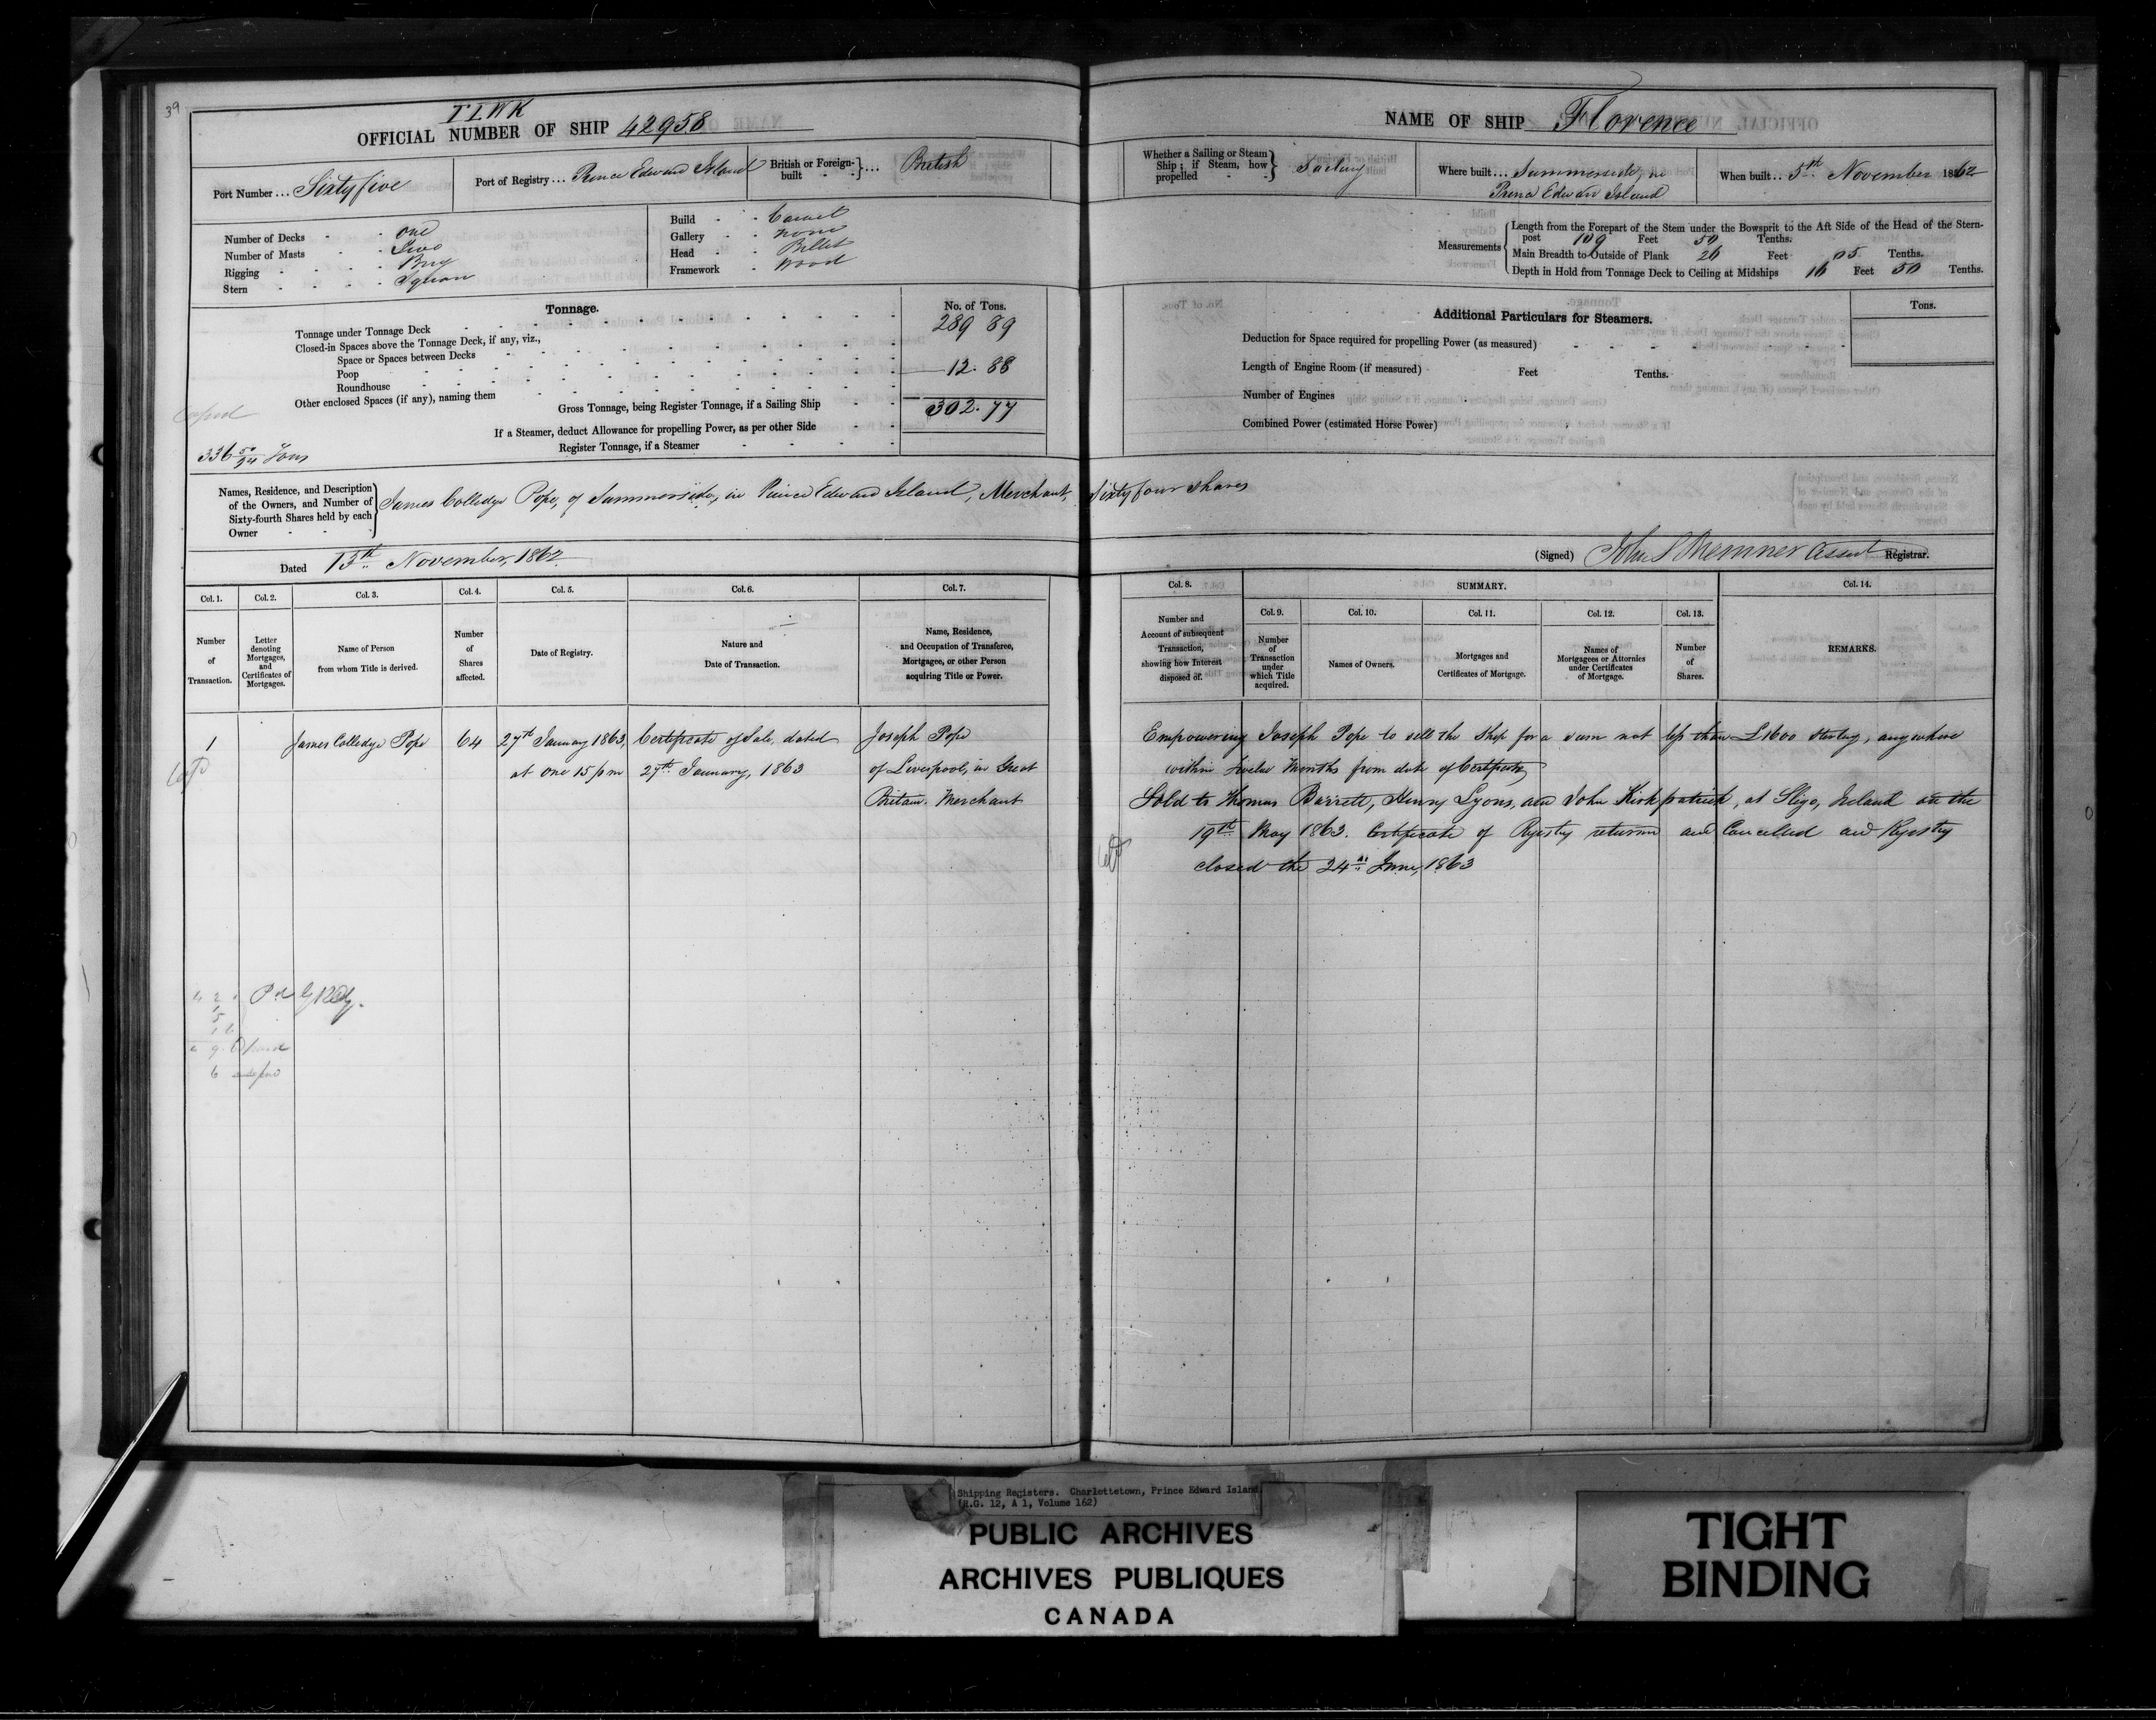 39
TLWK
OFFICIAL NUMBER OF SHIP 42958
Port Number ... Sixty five
Port of Registry ... Prince Edward Island
British or Foreign-built - - } ... British
Number of Decks - - one
Number of Masts - - Two
Rigging - - - - Brig
Stern - - - - Square
Build - - Carvel
Gallery - - none
Head - - Billet
Framework - wood
Tonnage.
No. of Tons.
Tonnage under Tonnage Deck 289 89
Closed-in Spaces above the Tonnage Deck, if any, viz.,
Space or Spaces between Decks
Poop 12. 88
Roundhouse
Other enclosed Spaces (if any), naming them
Gross Tonnage, being Register Tonnage, if a Sailing Ship 302. 77
If a Steamer, deduct Allowance for propelling Power, as per other Side
Register Tonnage, if a Steamer
336 50/94 Tons
NAME OF SHIP Florence
Whether a Sailing or Steam Ship; if Steam, how propelled - } Sailing
Where built ... Summerside, in
Prince Edward Island
When built .. 5th November 1862
Measurements
Length from the Forepart of the Stem under the Bowsprit to the Aft Side of the Head of the Stern-
post 109 Feet 50 Tenths.
Main Breadth to Outside of Plank 26 Feet 05 Tenths.
Depth in Hold from Tonnage Deck to Ceiling at Midships 16 Feet 50 Tenths.
Additional Particulars for Steamers.
Tons.
Deduction for Space required for propelling Power (as measured)
Length of Engine Room (if measured) Feet Tenths.
Number of Engines
Combined Power (estimated Horse Power)
Names, Residence, and Description of the Owners, and Number of Sixty-fourth Shares held by each Owner - -
James Colledge Pope, of Summerside, in Prince Edward Island, Merchant, Sixty four shares
Dated 13th November, 1862.
(Signed) John S Bremner Assist Registrar.
Col. 1. Col. 2. Col. 3. Col. 4. Col. 5. Col. 6. Col. 7.
Number of Transaction.
Letter denoting Mortgages, and Certificates of Mortgages.
Name of Person from whom Title is derived.
Number of Shares affected.
Date of Registry.
Nature and Date of Transaction.
Name, Residence, and Occupation of Transferee, Mortgagee, or other Person acquiring Title or Power.
Col. 8.
SUMMARY.
Col. 14.
Col. 9. Col. 10. Col. 11. Col. 12. Col. 13.
Number and Account of subsequent Transaction, showing how Interest disposed of.
Number of Transaction under which Title acquired.
Names of Owners.
Mortgages and Certificates of Mortgage.
Names of Mortgagees or Attornies under Certificates of Mortgage.
Number of Shares.
REMARKS.
1 James Colledge Pope 64 27th January 1863, Certificate of Sale, dated Joseph Pope
at one 15 p m 27th January, 1863 of Liverpool, in Great
Britain. Merchant
Empowering Joseph Pope to sell the Ship for a sum not less than £1600 sterling, anywhere
within twelve Months from date of Certificate
Sold to Thomas Barrett, Henry Lyons, and John Kirkpatrick, at Sligo, Ireland on the
19th May 1863. Certificate of Registry returned and Cancelled and Registry
closed the 24th June, 1863
Shipping Registers. Charlottetown, Prince Edward Island
(R.G. 12, A 1, Volume 162)
PUBLIC ARCHIVES
ARCHIVES PUBLIQUES
CANADA
TIGHT
BINDING